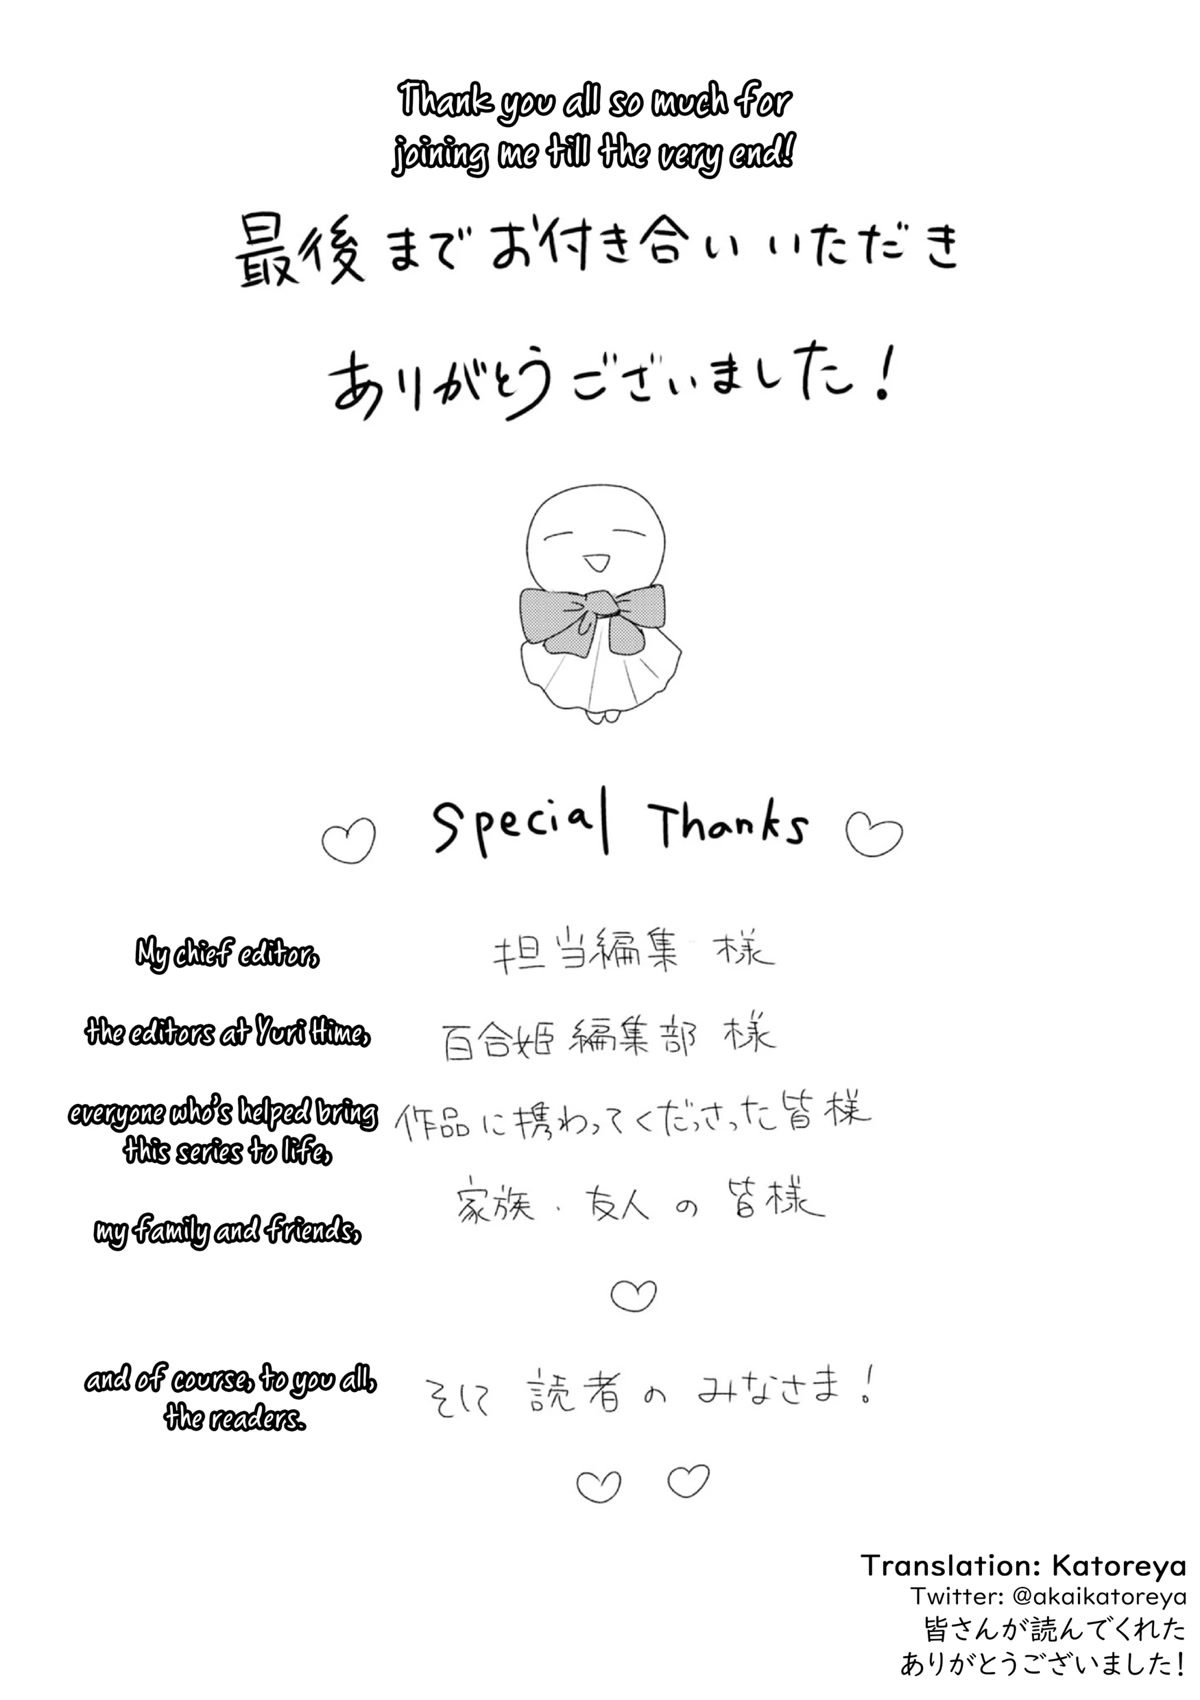 Thank you all so much for
joining me till the very end!
最後までお付き合いいただき
ありがとうございました!
Special Thanks
My chief editor,
担当編集 様
the editors at Yuri Hime,
百合姫編集部 様
everyone who's helped bring
this series to life,
作品に携わってくださった皆様
my family and friends,
家族・友人の皆様
and of course, to you all,
the readers.
そして 読者の みなさま!
Translation: Katoreya
Twitter: @akaikatoreya
皆さんが読んでくれた
ありがとうございました!